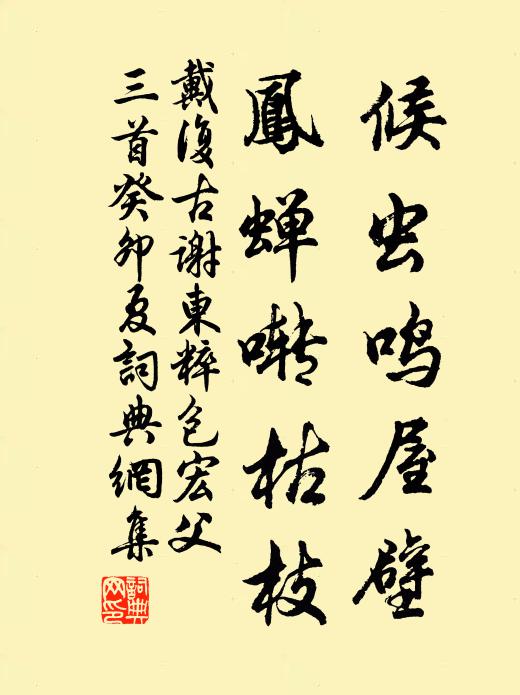 候虫鸣屋壁
鳳蝉嘶枯枝
戴復古谢東粹包宏父
三首癸卯夏詞典網集
詞典
网印